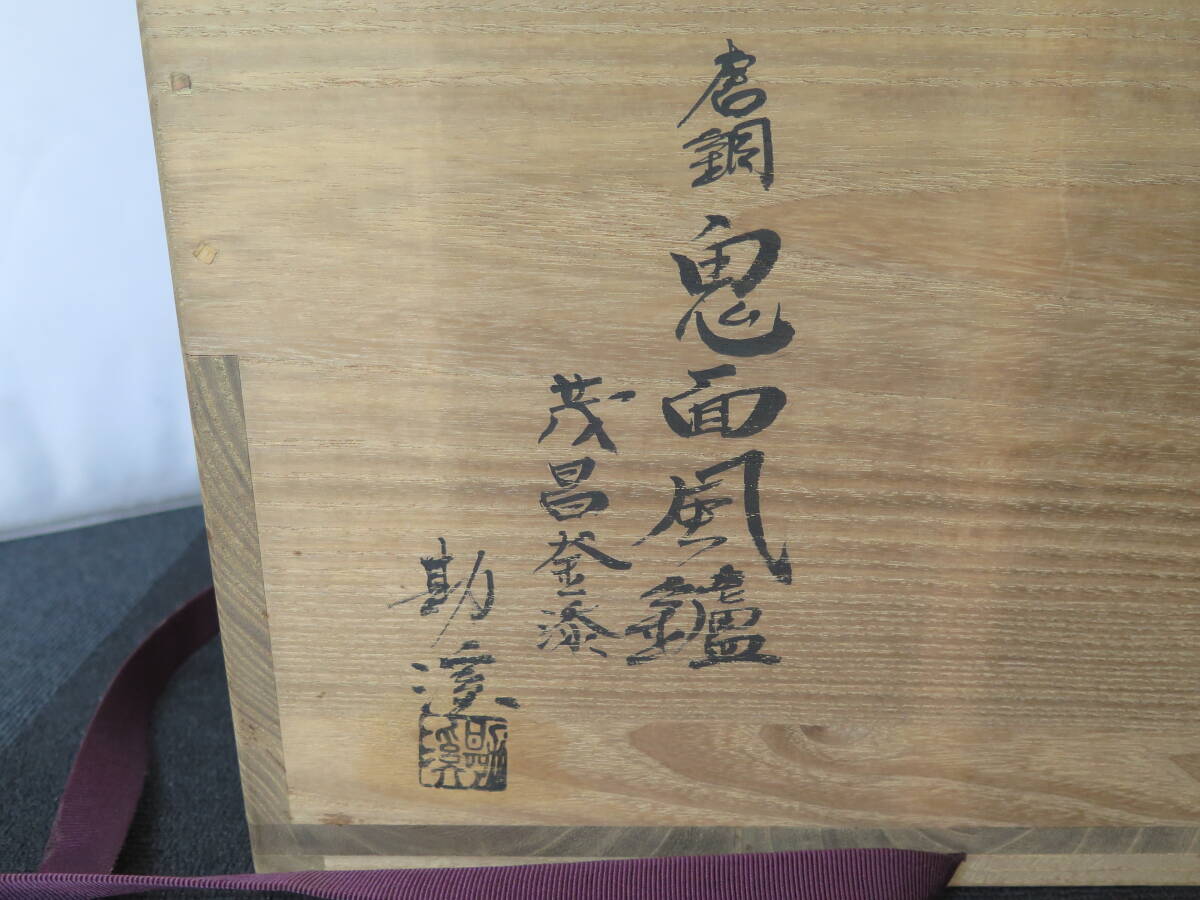 唐銅 鬼面風鑪
茂昌釜添
勘渓